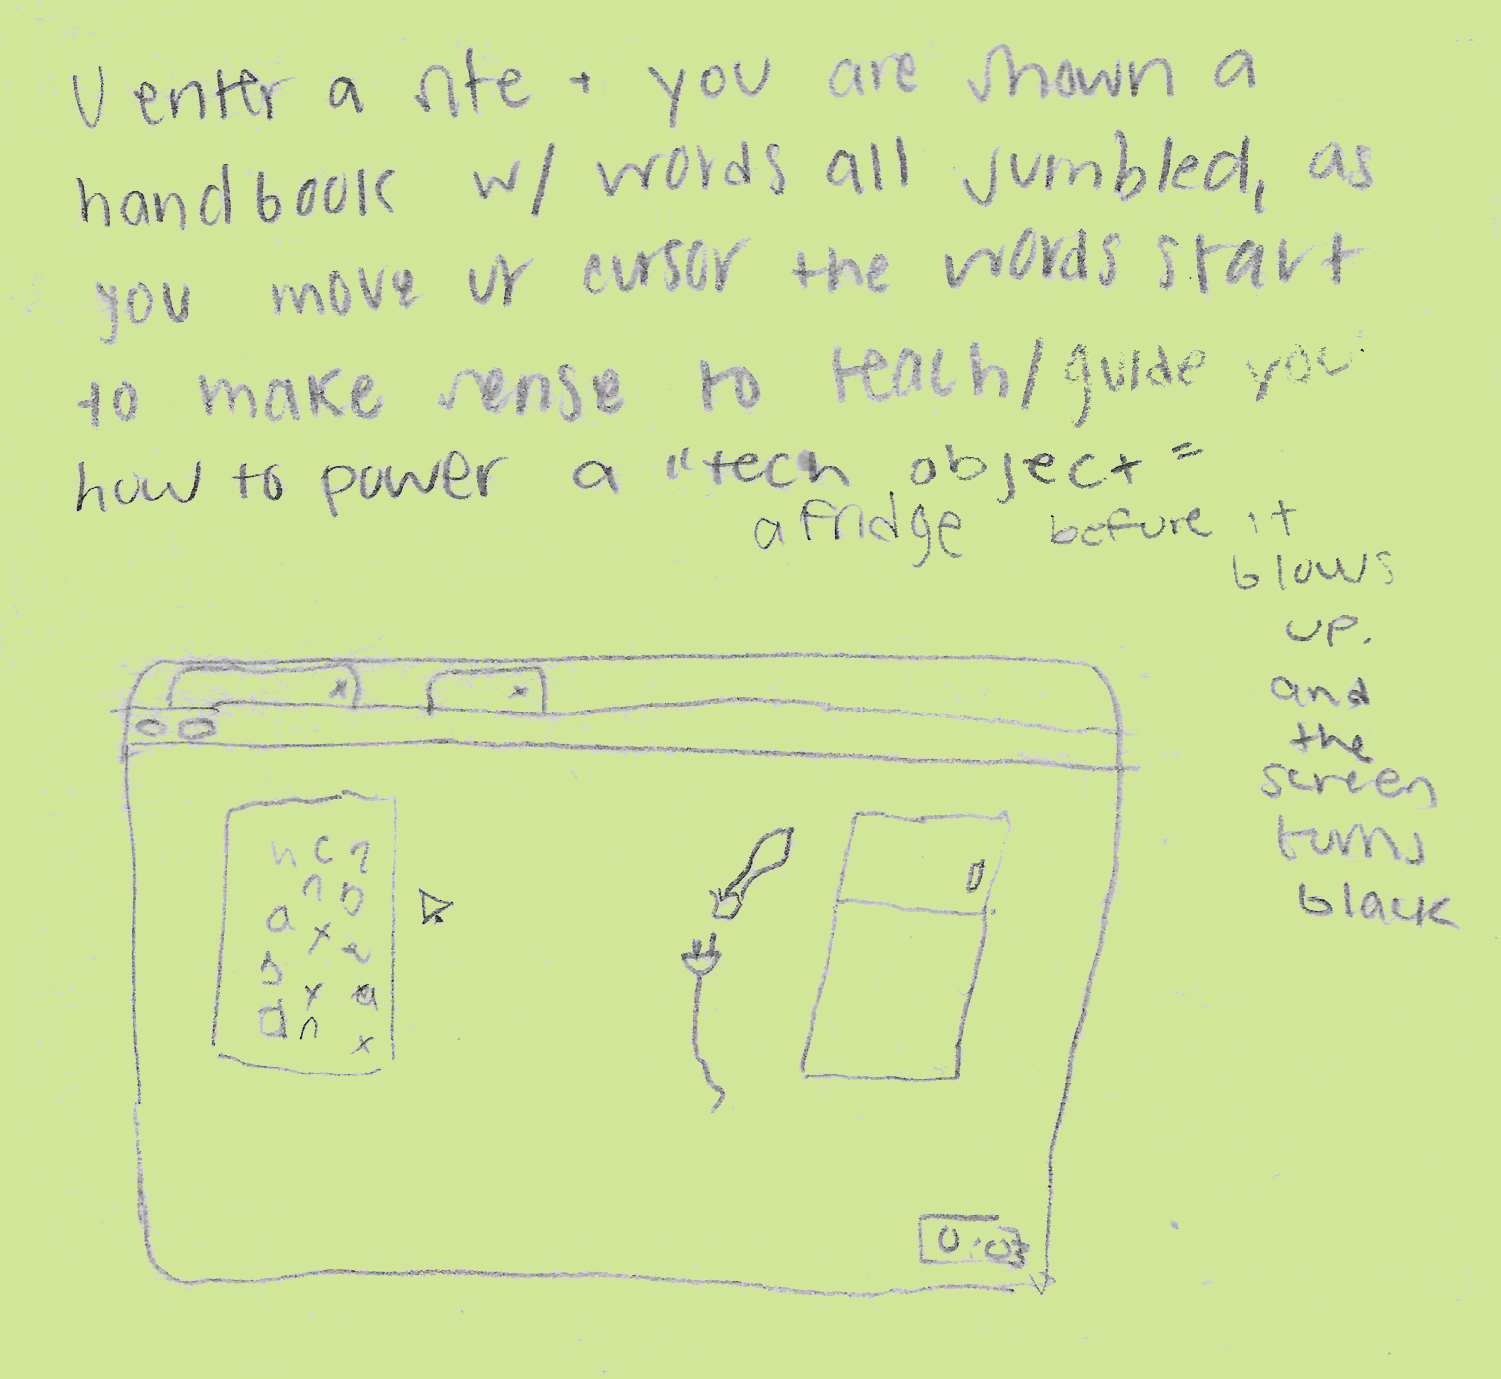 U enter a site + you are shown a
handbook w/ words all jumbled, as
you move ur cursor the words start
to make sense to teach/guide you
how to power a "tech object"
a fridge before it
blows
up.
and
the
screen
turns
black
x x
h c ?
n b
a x e
s
x a
d n
x